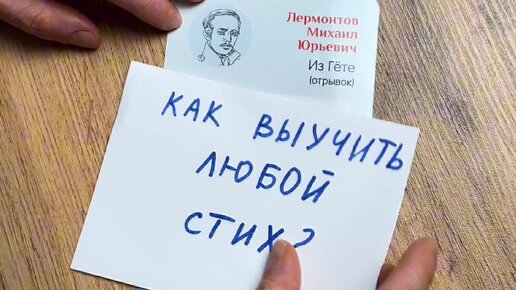 Лермонтов
Михаил
Юрьевич
Из Гёте
(отрывок)
КАК ВЫУЧИТЬ
ЛЮБОЙ
СТИХ?